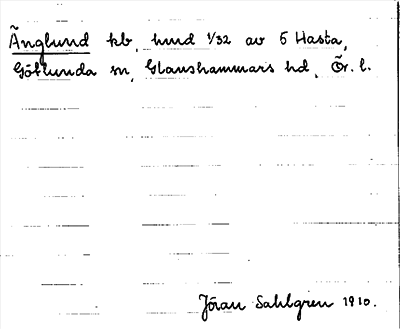 Änglund kb, hmd 1/32 av 5 Hasta,
Götlunda sn, Glanshammars hd, Ör. l.
Jöran Sahlgren 1910.